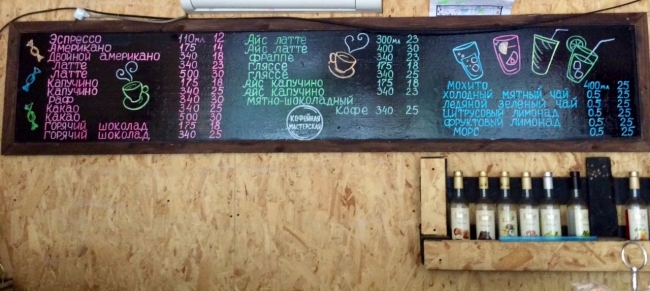 Эспрессо 110мл 12
Американо 175 14
Двойной американо 340 18
Латте 340 23
Латте 500 30
Капучино 175 18
Капучино 340 23
Раф 340 30
Какао 340 25
Какао 500 30
Горячий шоколад 175 18
Горячий шоколад 340 25
Айс латте 300мл 23
Айс латте 400 30
Фраппе 340 23
Гляссе 175 18
Гляссе 340 25
Айс капучино 175 18
Айс капучино 340 23
Мятно-шоколадный
кофе 340 25
КОФЕЙНАЯ
МАСТЕРСКАЯ
Мохито 400мл 25
Холодный мятный чай 0,5 25
Ледяной зеленый чай 0,5 25
Цитрусовый лимонад 0,5 25
Фруктовый лимонад 0,5 25
Морс 0,5 25